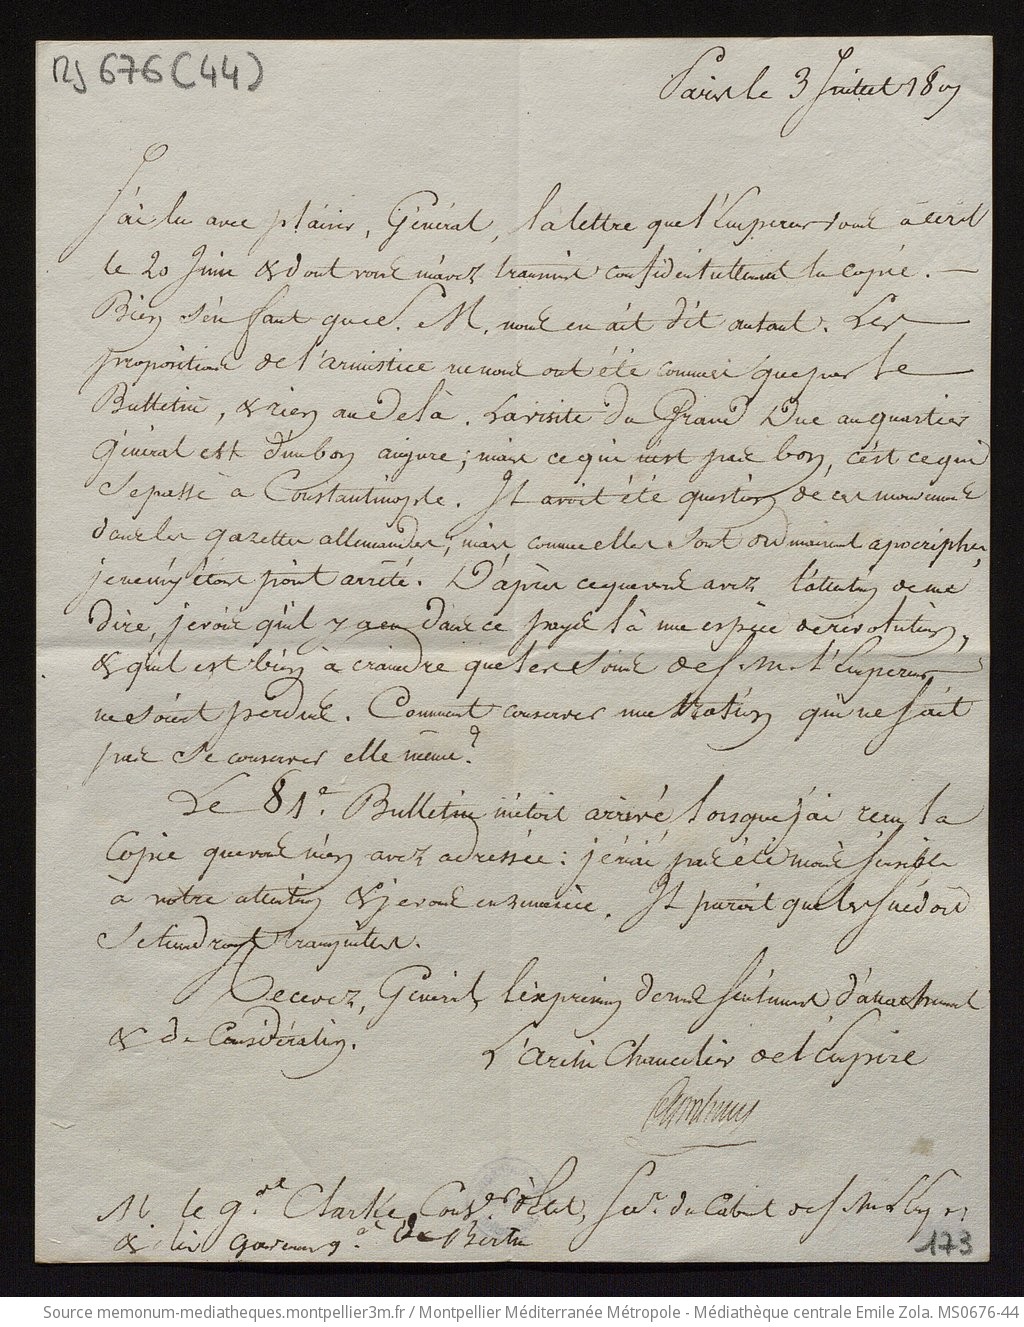 Ms 676 (44)
Paris le 3 Juillet 1807
J'ai lu avec plaisir, Général, la lettre que l'Empereur vous a écrit
le 20 Juin & dont vous m'avez transmis confidentiellement la copie. —
Bien s'en faut que S. M. nous en ait dit autant. Les
propositions de l'armistice ne nous ont été connues que par le
Bulletin, & rien au delà. La visite du Grand Duc au quartier
Général est d'un bon augure; mais ce qui n'est pas bon, c'est ce qui
se passe à Constantinople. Il avoit été question de ces mouvemens
dans les gazettes allemandes, mais comme elles sont ordinairement apocriphes,
je ne m'y étois point arrêté. D'après ce que vous avez l'attention de me
dire, je vois qu'il y a eu dans ce pays là une espèce de révolution,
& qu'il est bien à craindre que les soins de S. M. l'Empereur
ne soient perdus. Comment conserver une Nation qui ne sait
pas se conserver elle même?
Le 81e. Bulletin m'étoit arrivé lorsque j'ai reçu la
Copie que vous m'en avez adressée: je n'ai pas été moins sensible
à votre attention & je vous en remercie. Il paroit que les Suédois
se tiendront tranquilles.
Recevez, Général, l'expression de mes sentimens d'attachement
& de Considération.
L'archi Chancelier de l'Empire
Cambacérès
M. le gal. Clarke, Cons.er d'Etat, Secr. du Cabinet de S. M. l'Emp. r
& le gouverneur gal. de Berlin
173
Source memonum-mediatheques.montpellier3m.fr / Montpellier Méditerranée Métropole - Médiathèque centrale Emile Zola. MS0676-44